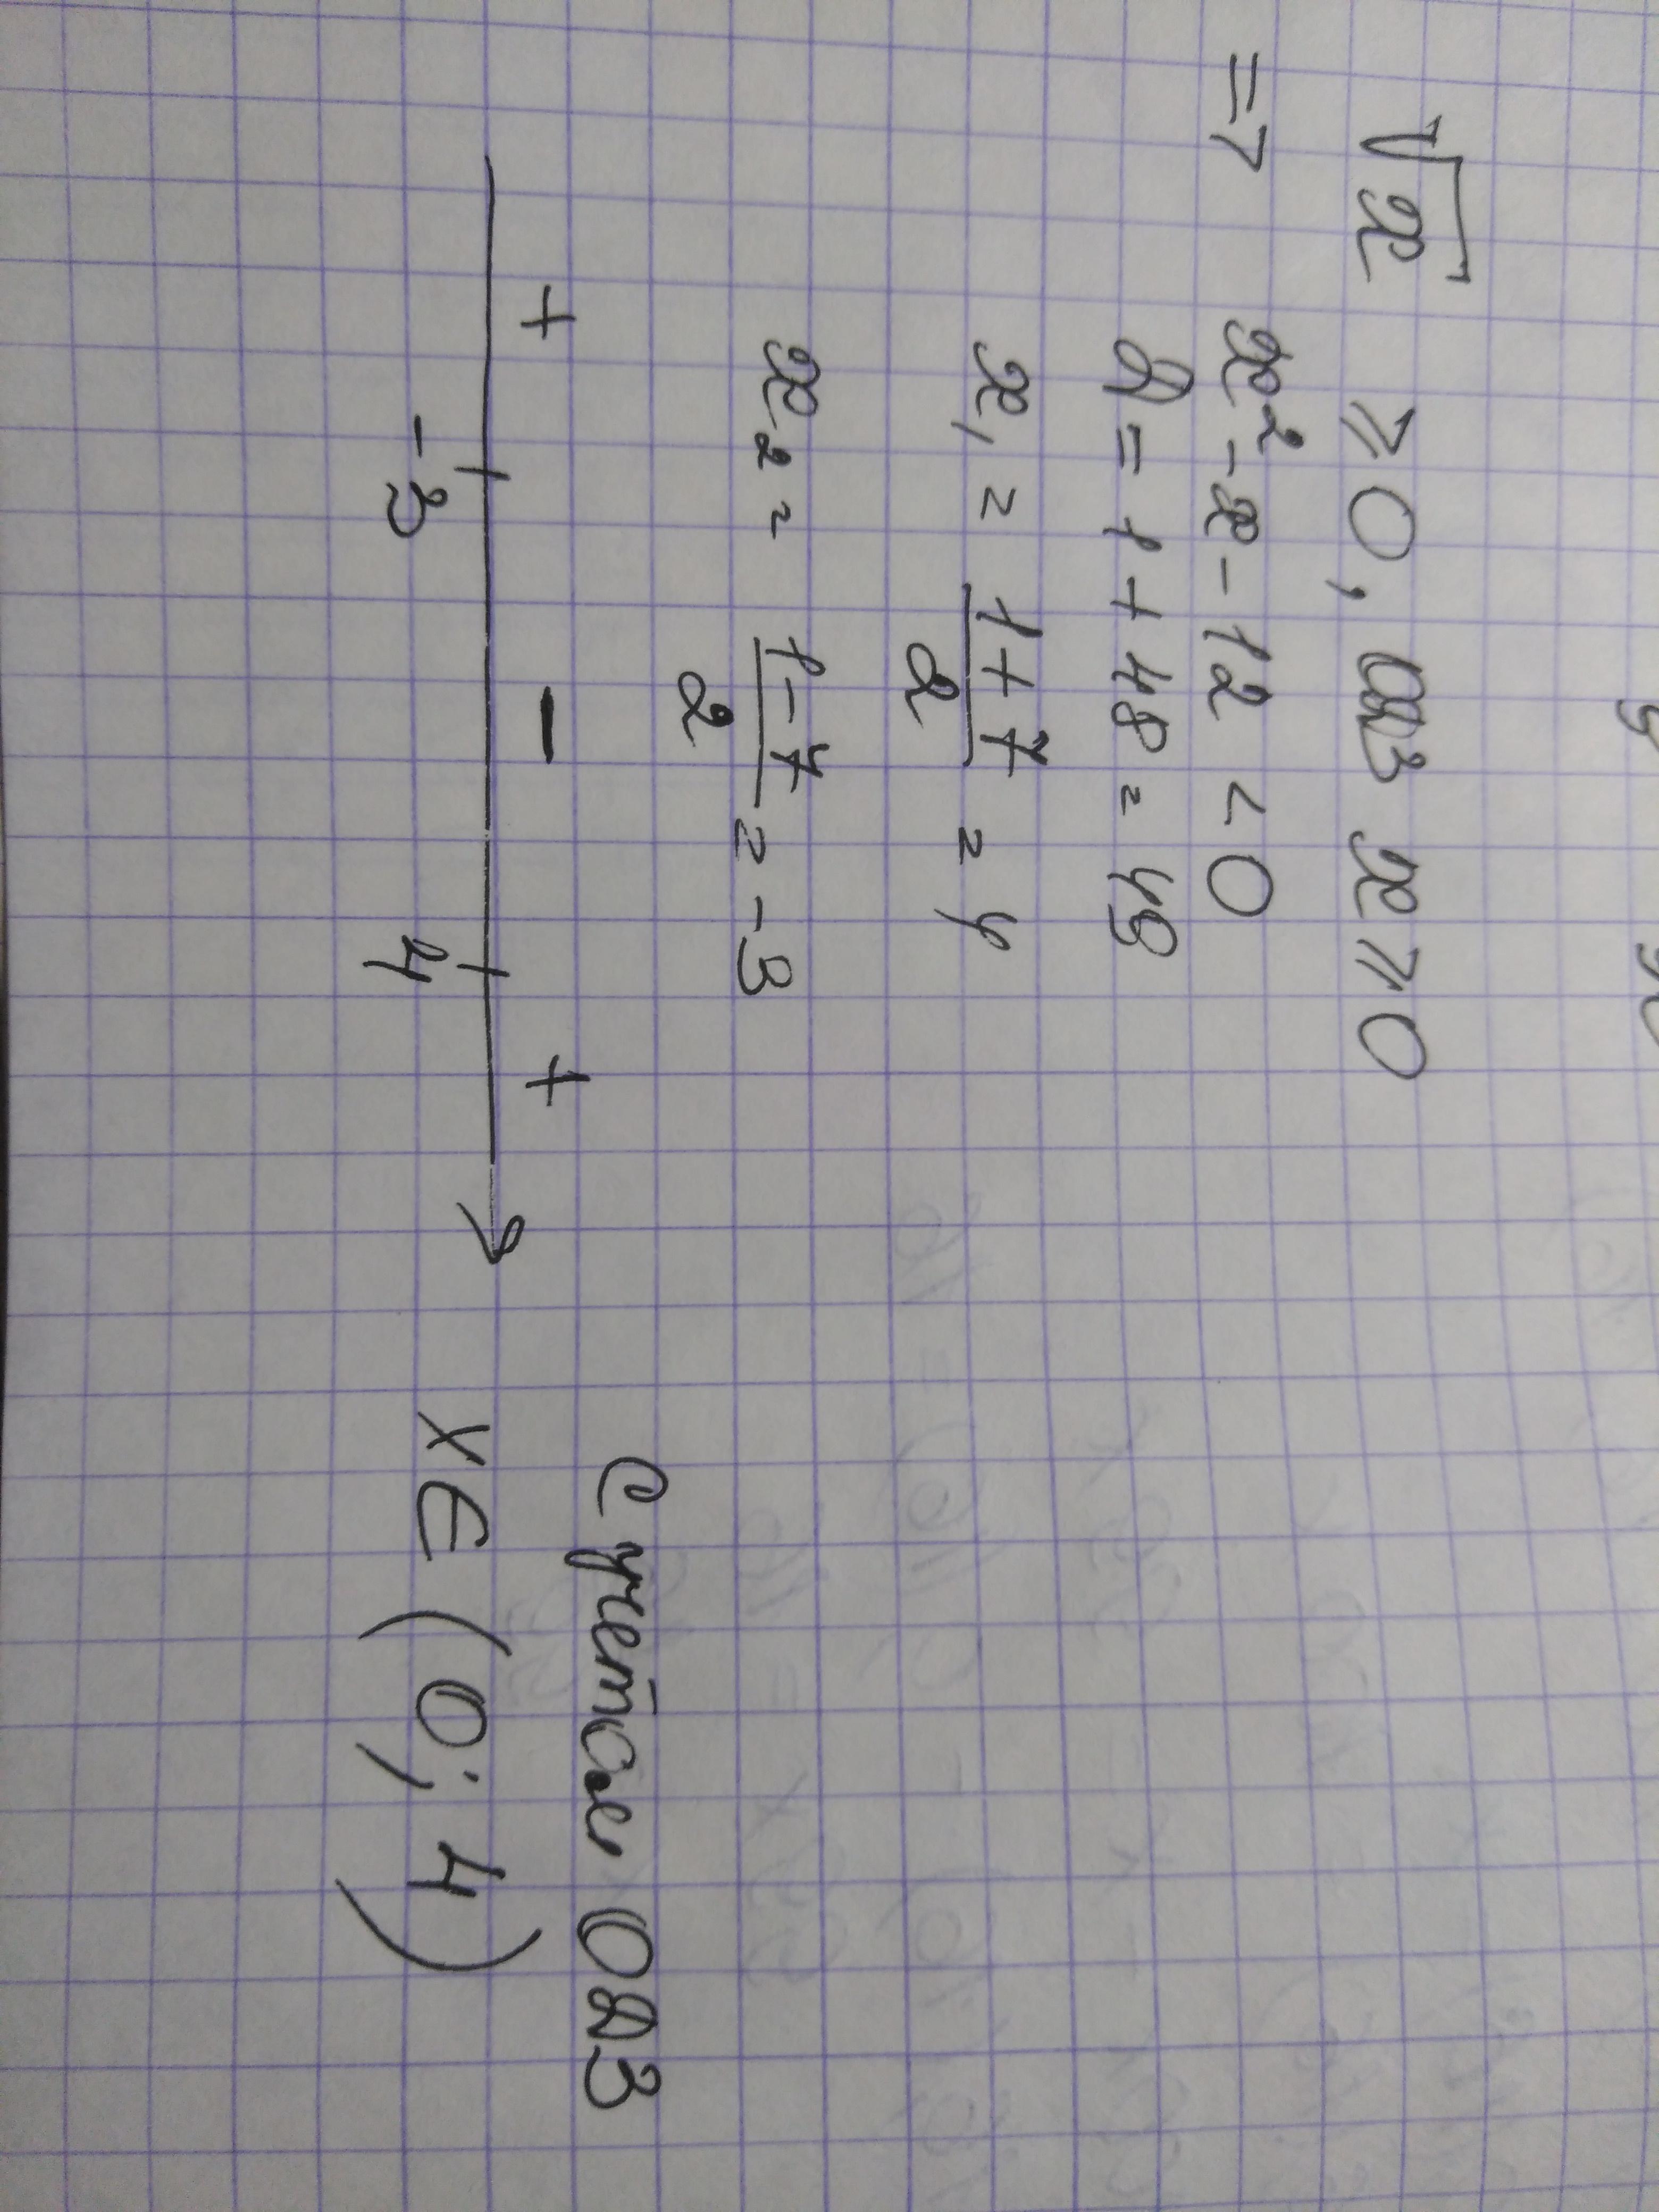 √x ≥ 0, ОДЗ x ≥ 0
=> x² - x - 12 < 0
D = 1 + 48 = 49
x₁ = (1 + 7)/2 = 4
x₂ = (1 - 7)/2 = -3
+ - +
-3 4
С учетом ОДЗ
x ∈ (0; 4)